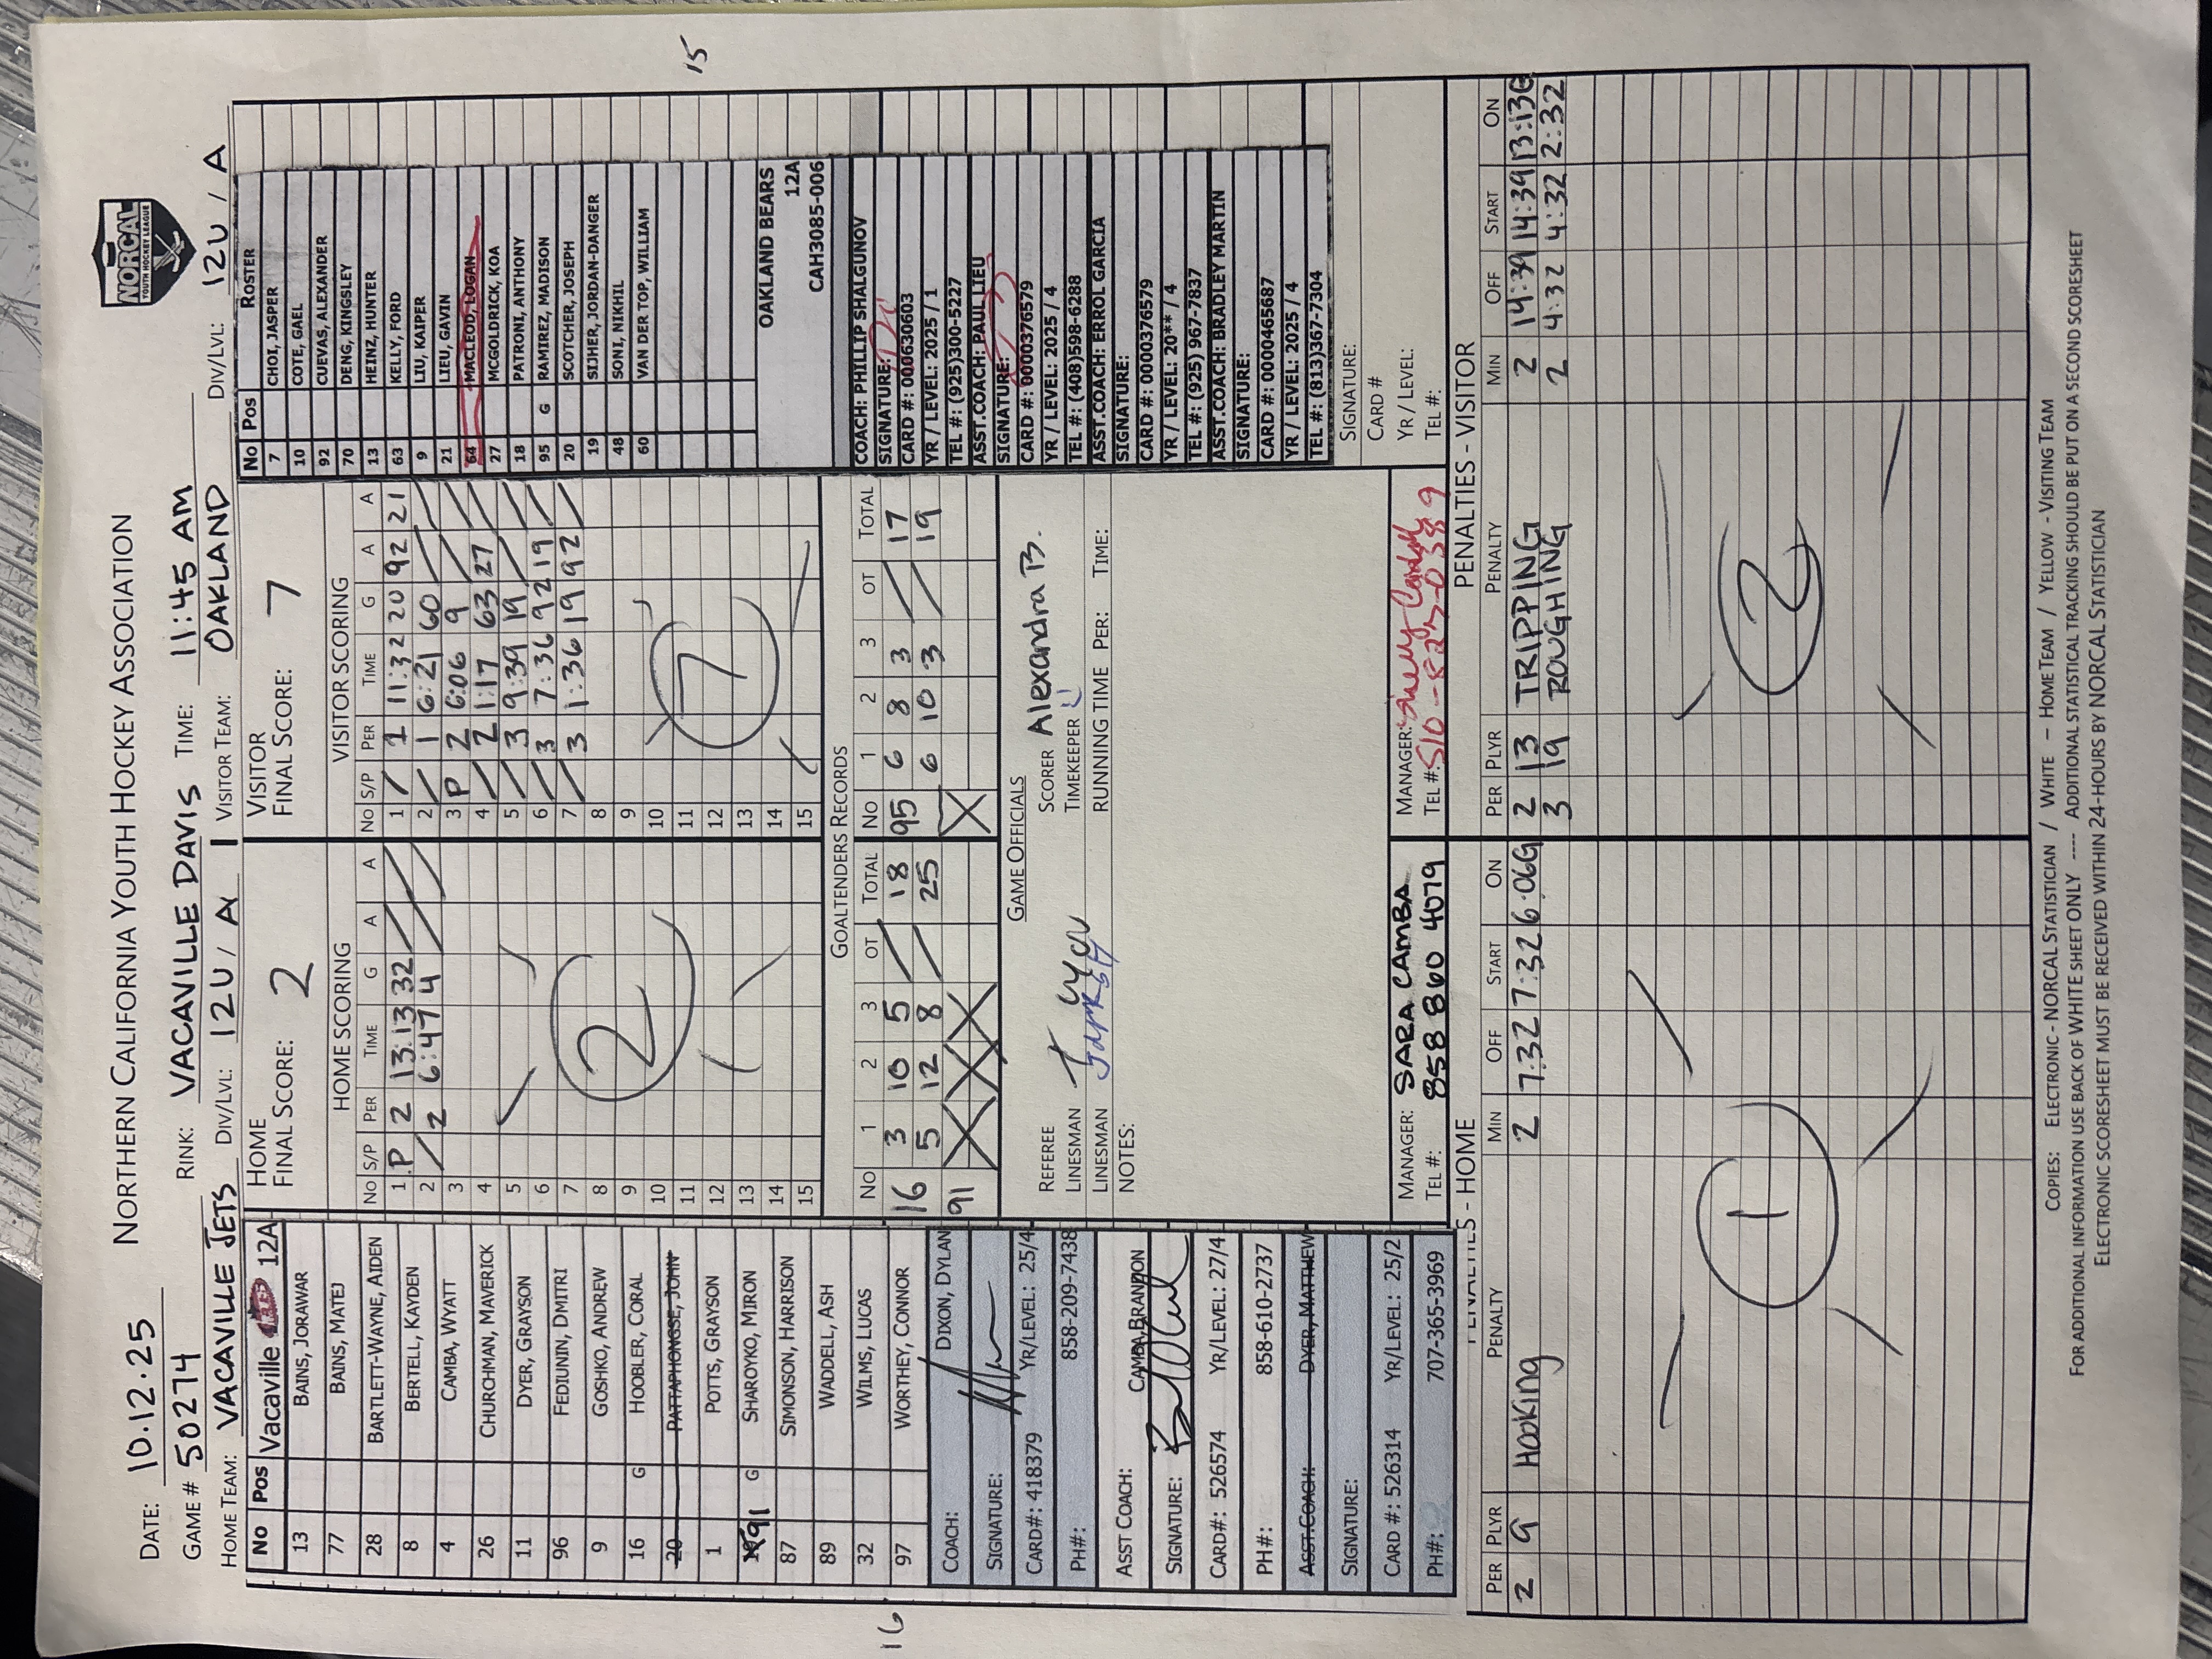 NORTHERN CALIFORNIA YOUTH HOCKEY ASSOCIATION
NORCAL
YOUTH HOCKEY LEAGUE
DATE: 10.12.25
GAME # 50274 RINK: VACAVILLE DAVIS TIME: 11:45 AM
HOME TEAM: VACAVILLE JETS DIV/LVL: 12U / A VISITOR TEAM: OAKLAND DIV/LVL: 12U / A
No Pos Vacaville JETS 12A
13 BAINS, JORAWAR
77 BAINS, MATEJ
28 BARTLETT-WAYNE, AIDEN
8 BERTELL, KAYDEN
4 CAMBA, WYATT
26 CHURCHMAN, MAVERICK
11 DYER, GRAYSON
96 FEDIUNIN, DMITRI
9 GOSHKO, ANDREW
16 G HOOBLER, CORAL
20 PATTAPHONGSE, JOHN
1 POTTS, GRAYSON
91 G SHAROYKO, MIRON
87 SIMONSON, HARRISON
89 WADDELL, ASH
32 WILMS, LUCAS
97 WORTHEY, CONNOR
16
COACH: DIXON, DYLAN
SIGNATURE:
CARD#: 418379 YR/LEVEL: 25/4
PH#: 858-209-7438
ASST COACH: CAMBA, BRANDON
SIGNATURE:
CARD#: 526574 YR/LEVEL: 27/4
PH#: 858-610-2737
ASST.COACH: DYER, MATTHEW
SIGNATURE:
CARD #: 526314 YR/LEVEL: 25/2
PH#: 707-365-3969
HOME
FINAL SCORE: 2
HOME SCORING
No S/P PER TIME G A A
1 P 2 13:13 32 / /
2 / 2 6:47 4 / /
3
4
5
6
7
8
9
10
11
12
13
14
15
2
VISITOR
FINAL SCORE: 7
VISITOR SCORING
No S/P PER TIME G A A
1 / 1 11:32 20 92 21
2 / 1 6:21 60 / /
3 P 2 6:06 9 / /
4 / 2 1:17 63 27 /
5 / 3 9:39 19 / /
6 / 3 7:36 92 19 /
7 / 3 1:36 19 92 /
8
9
10
11
12
13
14
15
7
GOALTENDERS RECORDS
No 1 2 3 OT TOTAL No 1 2 3 OT TOTAL
16 3 10 5 / 18 95 6 8 3 / 17
91 5 12 8 / 25 6 10 3 / 19
GAME OFFICIALS
REFEREE SCORER Alexandra B.
LINESMAN TIMEKEEPER
LINESMAN RUNNING TIME PER: TIME:
NOTES:
MANAGER: SARA CAMBA
TEL #: 858 860 4079
MANAGER:
TEL #:
No Pos ROSTER
7 CHOI, JASPER
10 COTE, GAEL
92 CUEVAS, ALEXANDER
70 DENG, KINGSLEY
13 HEINZ, HUNTER
63 KELLY, FORD
9 LIU, KAIPER
21 LIEU, GAVIN
64 MACLEOD, LOGAN
27 MCGOLDRICK, KOA
18 PATRONI, ANTHONY
95 G RAMIREZ, MADISON
20 SCOTCHER, JOSEPH
19 SIJHER, JORDAN-DANGER
48 SONI, NIKHIL
60 VAN DER TOP, WILLIAM
15
OAKLAND BEARS
12A
CAH3085-006
COACH: PHILLIP SHALGUNOV
SIGNATURE:
CARD #: 000630603
YR / LEVEL: 2025 / 1
TEL #: (925)300-5227
ASST.COACH: PAUL LIEU
SIGNATURE:
CARD #: 0000376579
YR / LEVEL: 2025 / 4
TEL #: (408)598-6288
ASST.COACH: ERROL GARCIA
SIGNATURE:
CARD #: 0000376579
YR / LEVEL: 20** / 4
TEL #: (925) 967-7837
ASST.COACH: BRADLEY MARTIN
SIGNATURE:
CARD #: 0000465687
YR / LEVEL: 2025 / 4
TEL #: (813)367-7304
SIGNATURE:
CARD #
YR / LEVEL:
TEL #:
PENALTIES - HOME
PER PLYR PENALTY MIN OFF START ON
2 9 HOOKING 2 7:32 7:32 6:06G
1
PENALTIES - VISITOR
PER PLYR PENALTY MIN OFF START ON
2 13 TRIPPING 2 14:39 14:39 13:13G
3 19 ROUGHING 2 4:32 4:32 2:32
2
COPIES: ELECTRONIC - NORCAL STATISTICIAN / WHITE – HOME TEAM / YELLOW - VISITING TEAM
FOR ADDITIONAL INFORMATION USE BACK OF WHITE SHEET ONLY ---- ADDITIONAL STATISTICAL TRACKING SHOULD BE PUT ON A SECOND SCORESHEET
ELECTRONIC SCORESHEET MUST BE RECEIVED WITHIN 24-HOURS BY NORCAL STATISTICIAN